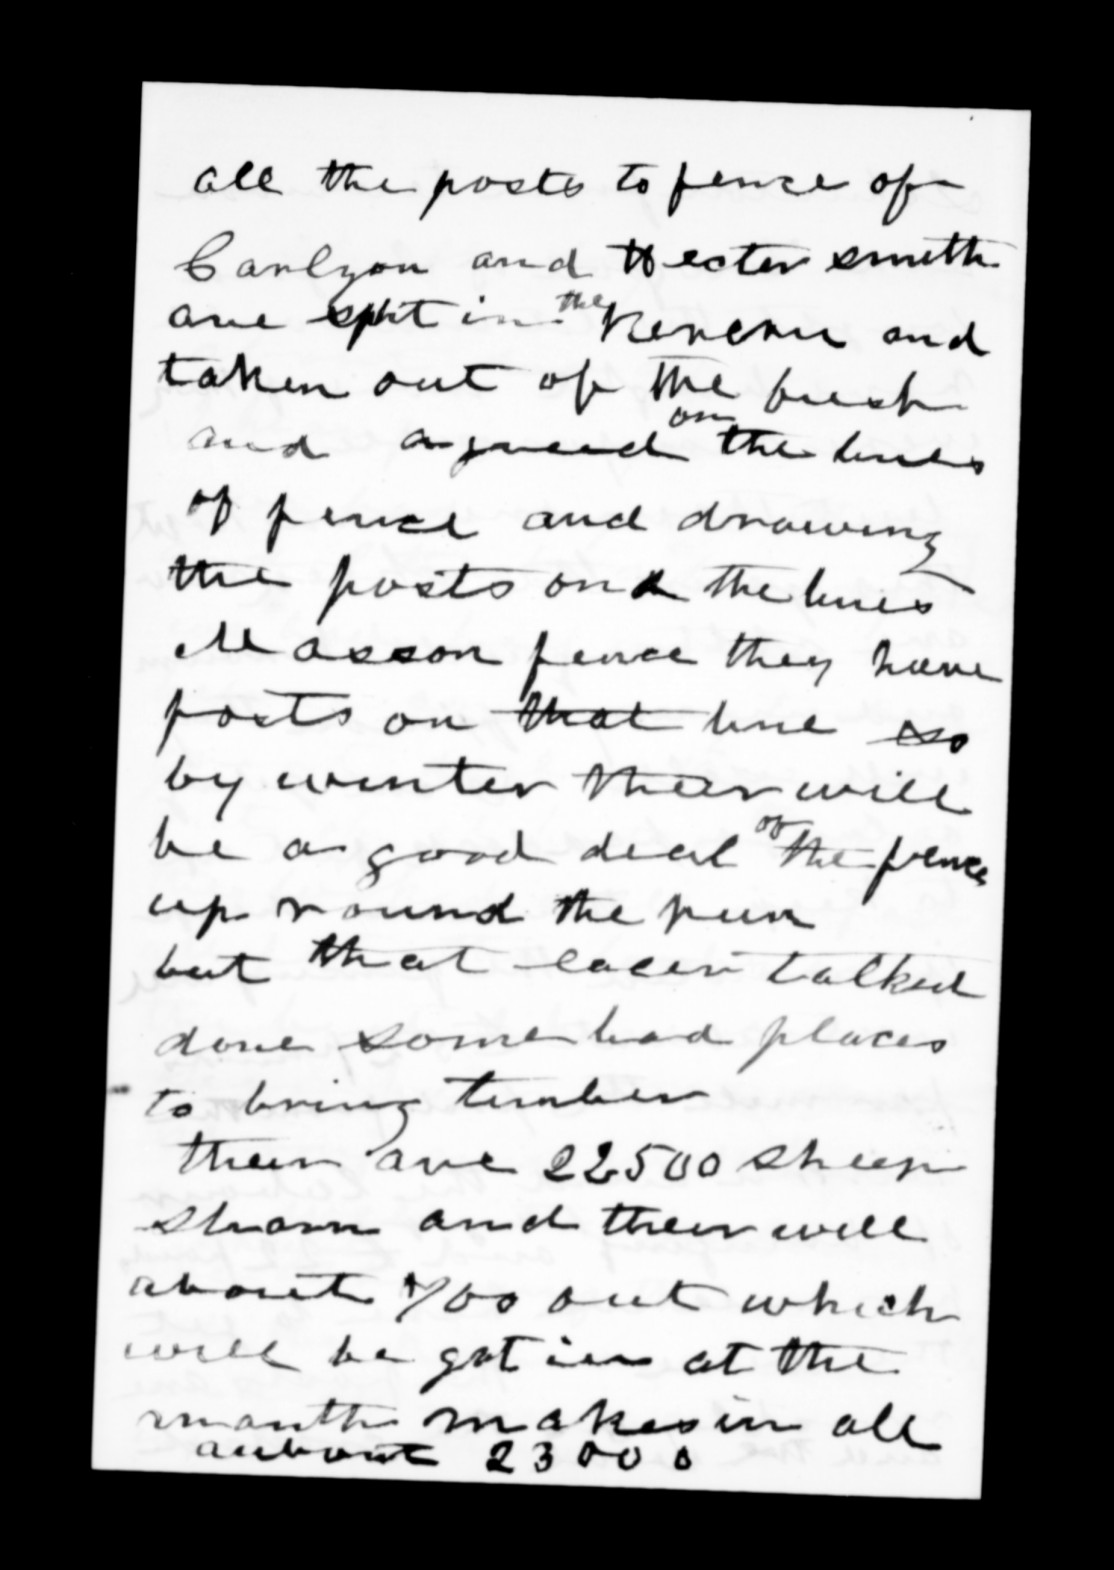 all the posts to fence of
Carlyon and Hector smith
are split in the Rereru and
taken out of the bush
and agreed on the lines
of fence and drawing
the posts on the lines
Masson fence they have
posts on that line so
by winter their will
be a good deal of the fence
up round the run
but that talked
done some bad places
to bring timber
their are 22500 sheep
shorn and their will
about 700 out which
will be got in at the
month makes in all
aubout 23000